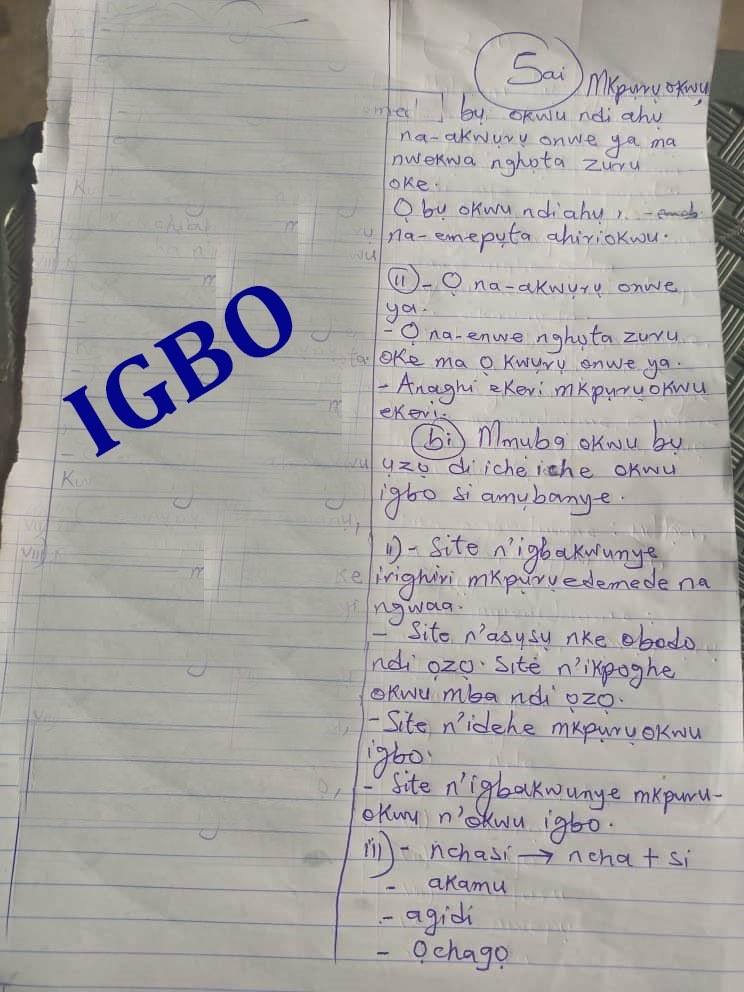 5ai Mkpụrụokwụ
bụ okwu ndi ahụ
na-akwụrụ onwe ya ma
nwekwa nghọta zuru
oke.
Ọ bụ okwu ndiahụ,
na-emepụta ahiriokwu.
ii - Ọ na-akwụrụ onwe
ya.
- Ọ na-enwe nghọta zuru
oke ma ọ kwụrụ onwe ya.
- Anaghi ekeri mkpụrụokwu
ekeri.
bi Mmuba okwu bụ
ụzọ di icheiche okwu
igbo si amụbanye.
IGBO
ii) - Site n'igbakwunye
irighiri mkpụrụedemede na
ngwaa.
- Site n'asụsụ nke obodo
ndi ọzọ. Site n'ikpoghe
okwu mba ndi ọzọ.
- Site n'idehe mkpụrụokwu
igbo.
- Site n'igbakwunye mkpuru-
okwu n'okwu igbo.
iii) - nchasi → ncha + si
- akamu
- agidi
- Ọchagọ